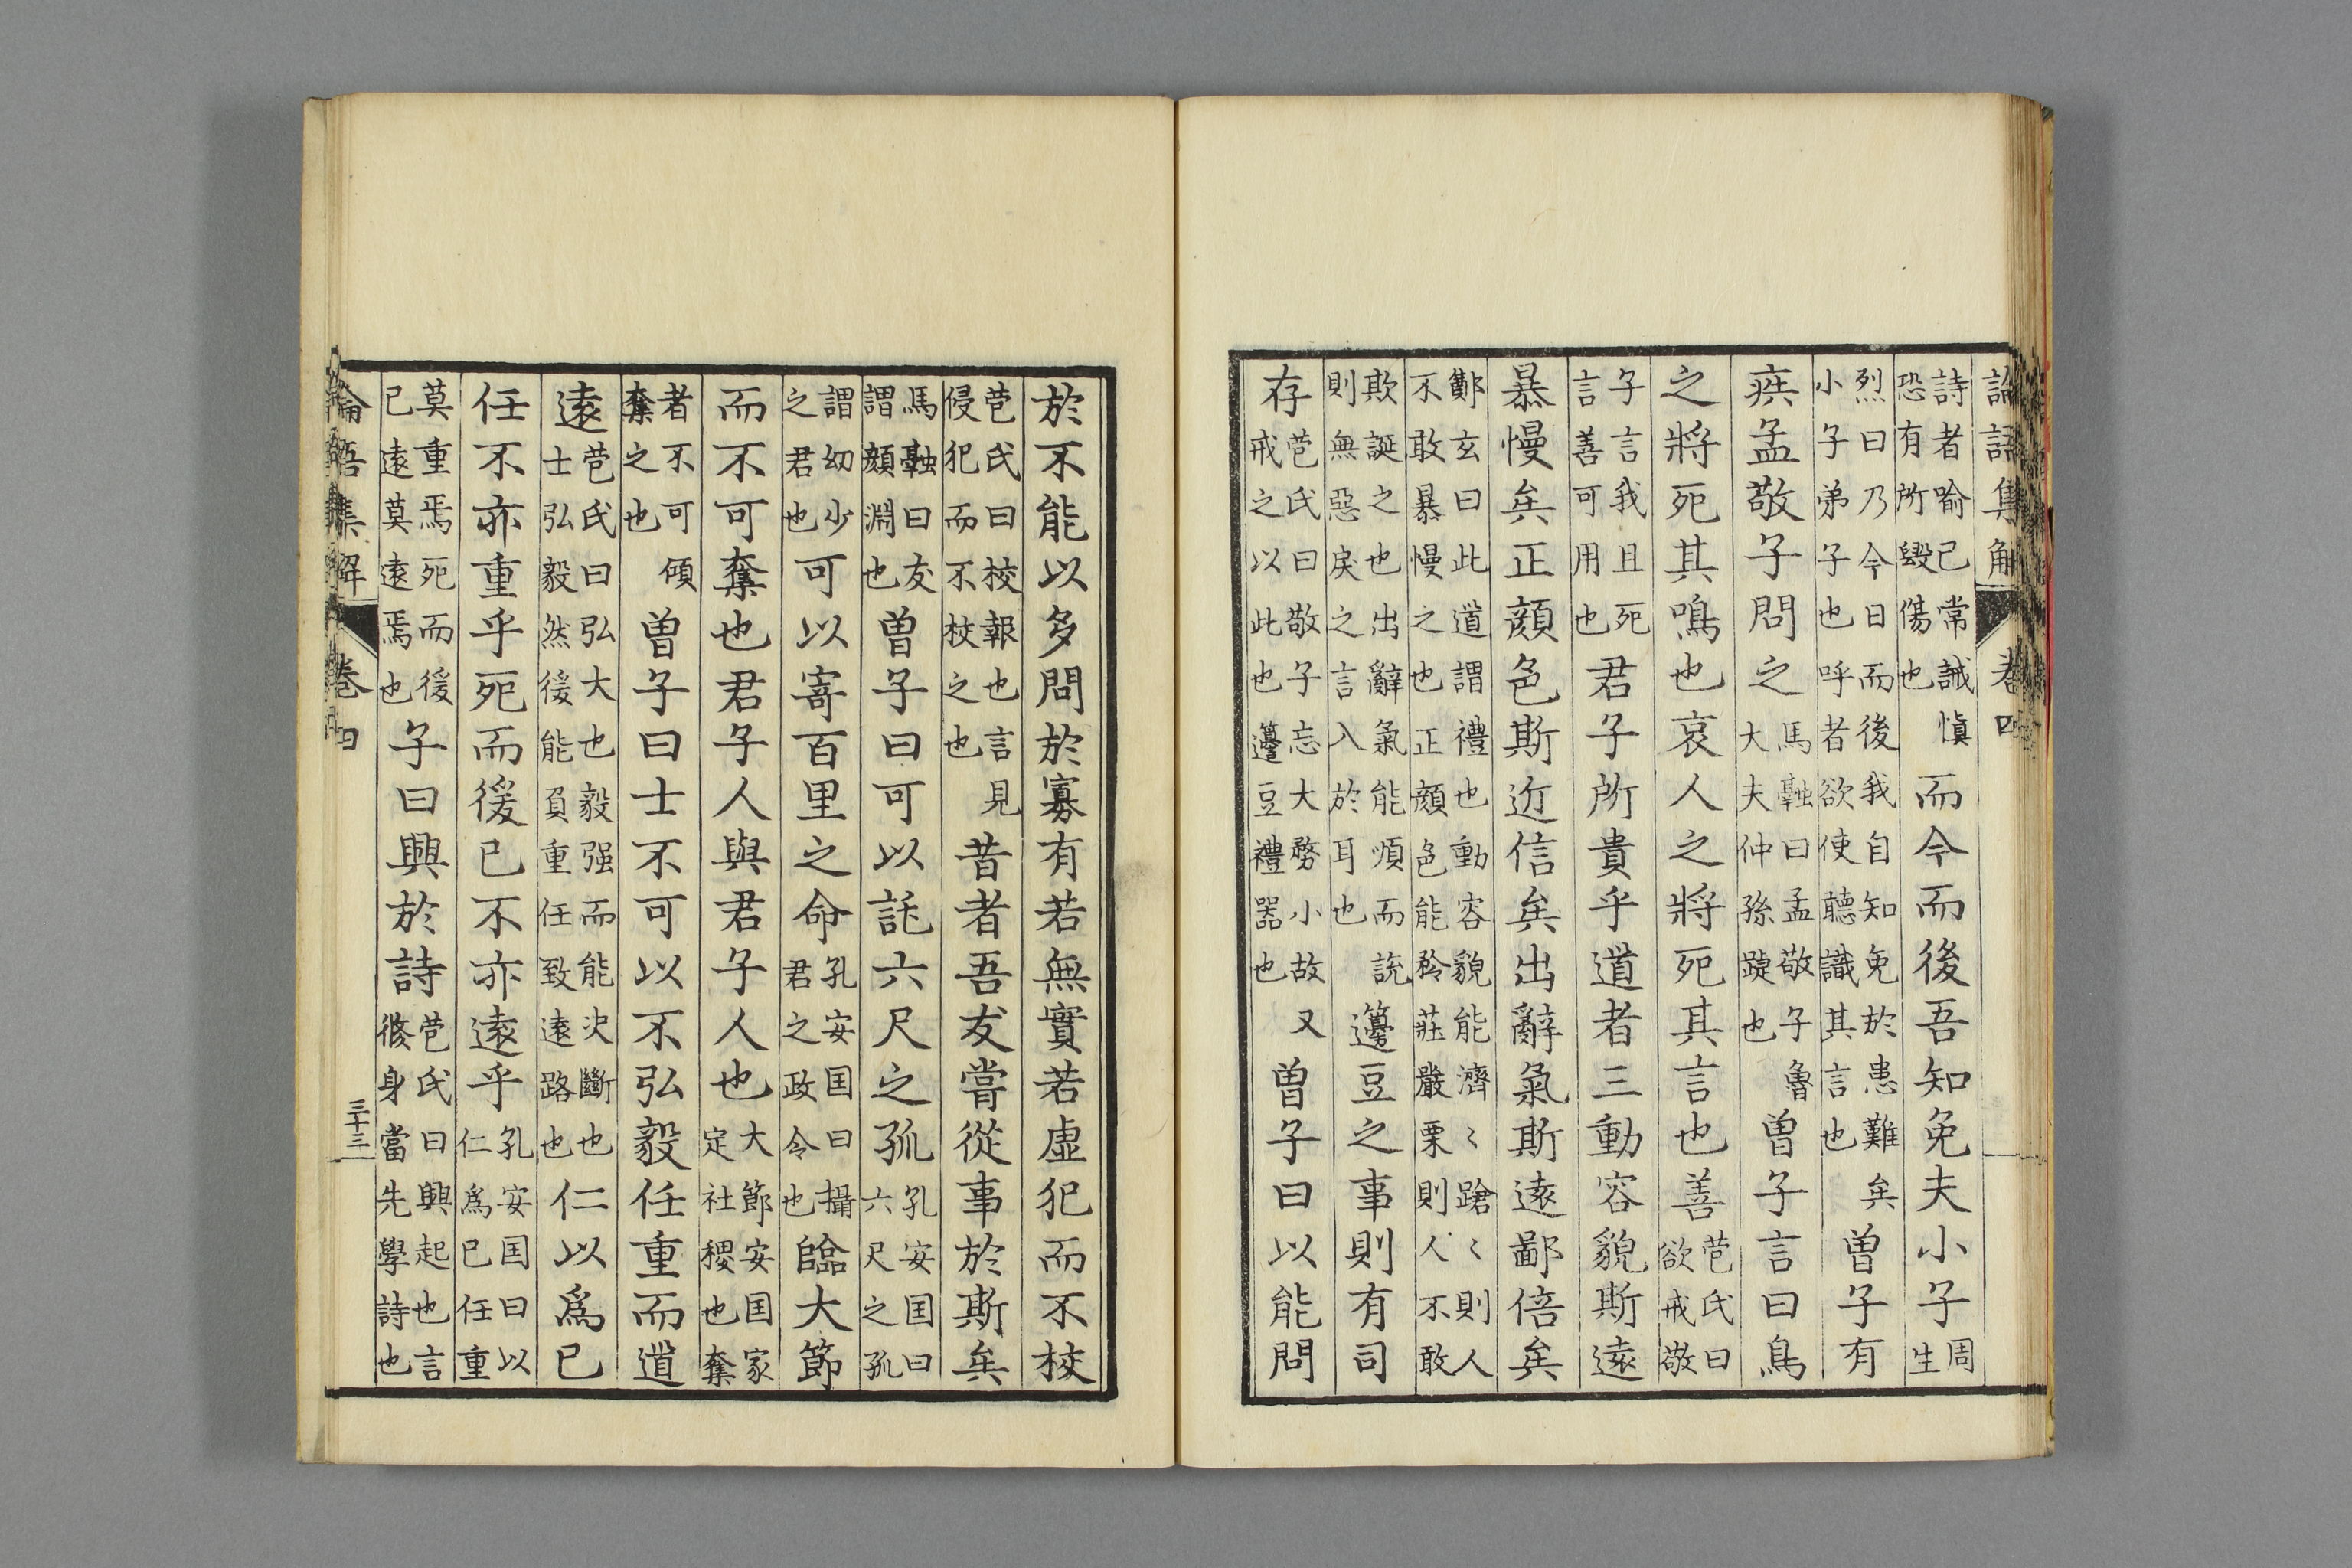 論語集解 卷四
詩者喻己常誡慎恐有所毀傷也而今而後吾知免夫小子周生
烈曰乃今日而後我自知免於患難矣小子弟子也呼者欲使聽識其言也曽子有
疾孟敬子問之馬融曰孟敬子魯大夫仲孫踺也曽子言曰鳥
之將死其鳴也哀人之將死其言也善苞氏曰欲戒敬
子言我且死言善可用也君子所貴乎道者三動容貌斯遠
暴慢矣正顔色斯近信矣出辭氣斯遠鄙倍矣
鄭玄曰此道謂禮也動容貌能濟〻蹌〻則人不敢暴慢之也正顔色能矜莊嚴栗則人不敢
欺誕之也出辭氣能順而說則無惡戾之言入於耳也籩豆之事則有司
存苞氏曰敬子忘大務小故又戒之以此也籩豆禮器也曽子曰以能問
於不能以多問於寡有若無實若虛犯而不校
苞氏曰校報也言見侵犯而不校之也昔者吾友嘗從事於斯矣
馬融曰友謂顔淵也曽子曰可以託六尺之孤孔安国曰六尺之孤
謂幼少之君也可以寄百里之命孔安国曰攝君之政令也臨大節
而不可奪也君子人與君子人也大節安国家定社稷也奪
者不可傾奪之也曽子曰士不可以不弘毅任重而道
遠苞氏曰弘大也毅强而能决斷也士弘毅然後能負重任致遠路也仁以爲己
任不亦重乎死而後已不亦遠乎孔安国曰以仁爲己任重
莫重焉死而後已遠莫遠焉也子曰興於詩苞氏曰興起也言修身當先學詩也
論語集解 卷四 三十三